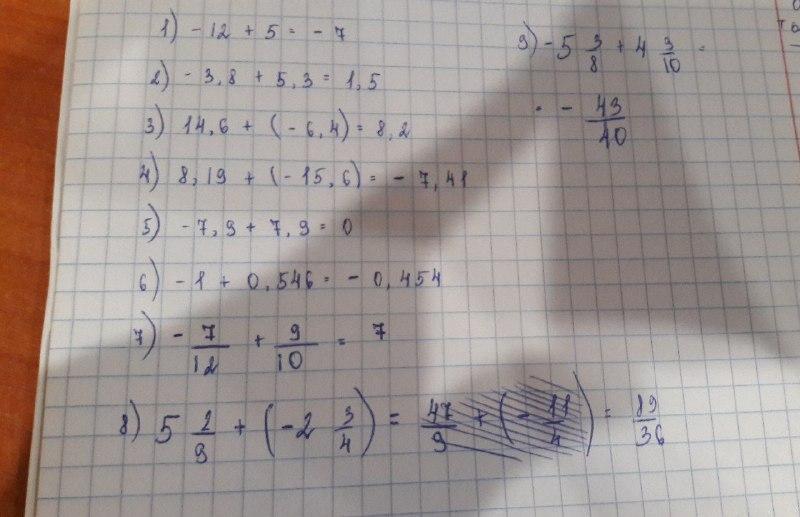 1) -12 + 5 = -7
2) -3,8 + 5,3 = 1,5
3) 14,6 + (-6,4) = 8,2
4) 8,19 + (-15,6) = -7,41
5) -7,9 + 7,9 = 0
6) -1 + 0,546 = -0,454
7) -7/12 + 9/10 = 7
8) 5 2/9 + (-2 3/4) = 47/9 + (-11/4) = 89/36
9) -5 3/8 + 4 3/10 =
= -43/40